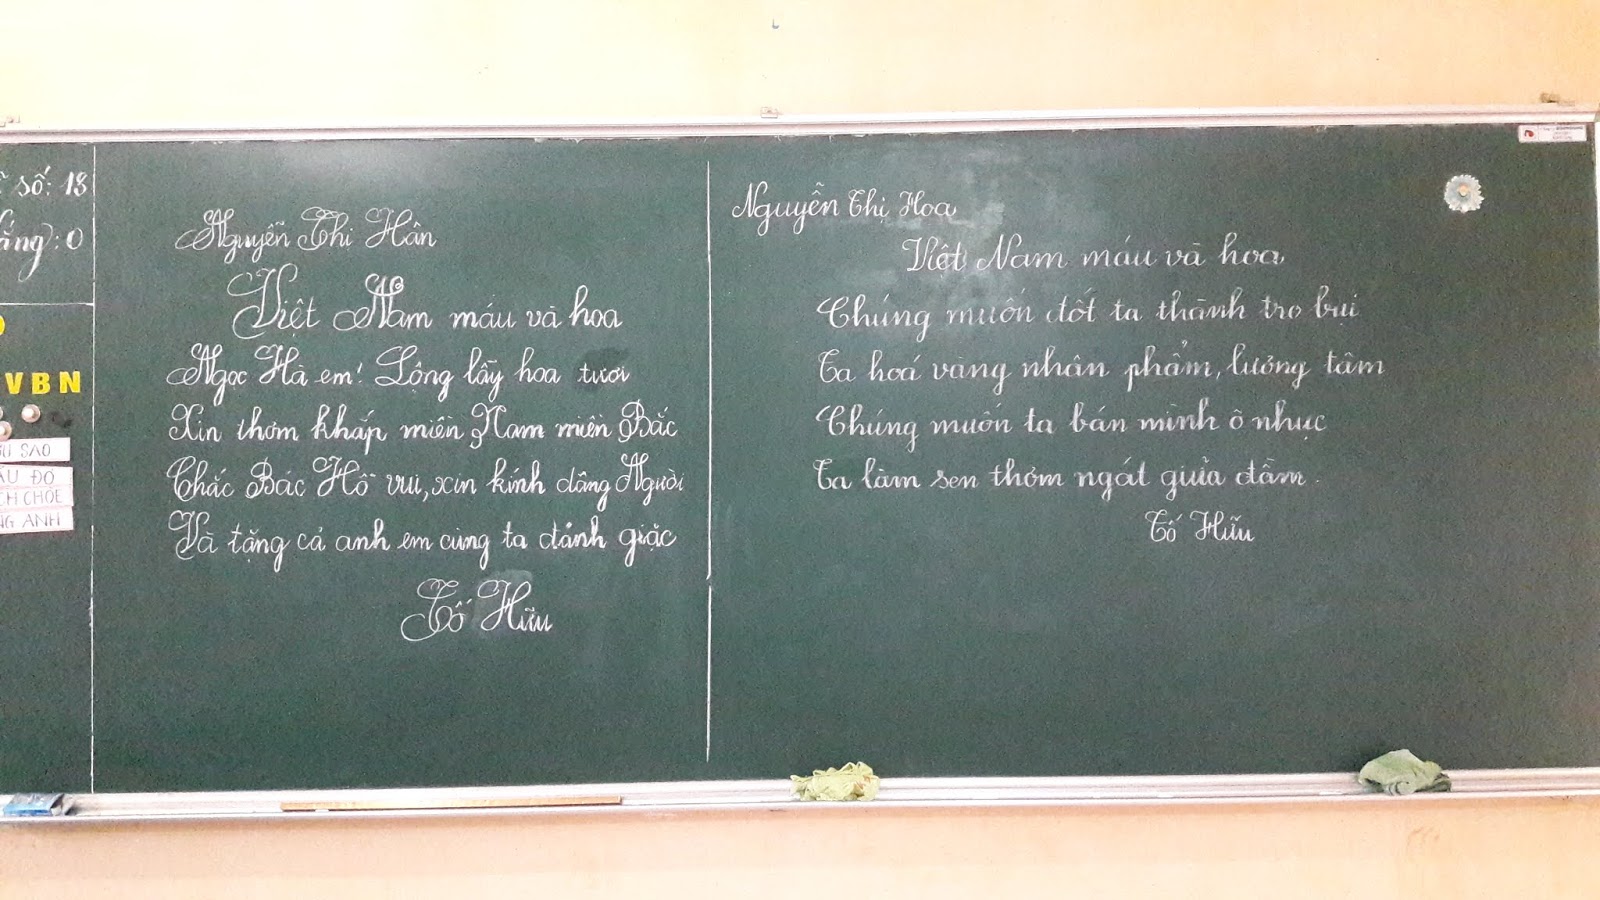 số: 18
ắng: 0
VBN
SAO
ĐỎ
CH CHOE
NG ANH
Nguyễn Thị Hân
Việt Nam máu và hoa
Ngọc Hà em! Lộng lẫy hoa tươi
Xin thơm khắp miền Nam miền Bắc
Chắc Bác Hồ vui, xin kính dâng Người
Và tặng cả anh em cùng ta đánh giặc
Tố Hữu
Nguyễn Thị Hoa
Việt Nam máu và hoa
Chúng muốn đốt ta thành tro bụi
Ta hoá vàng nhân phẩm, lương tâm
Chúng muốn ta bán mình ô nhục
Ta làm sen thơm ngát giữa đầm.
Tố Hữu